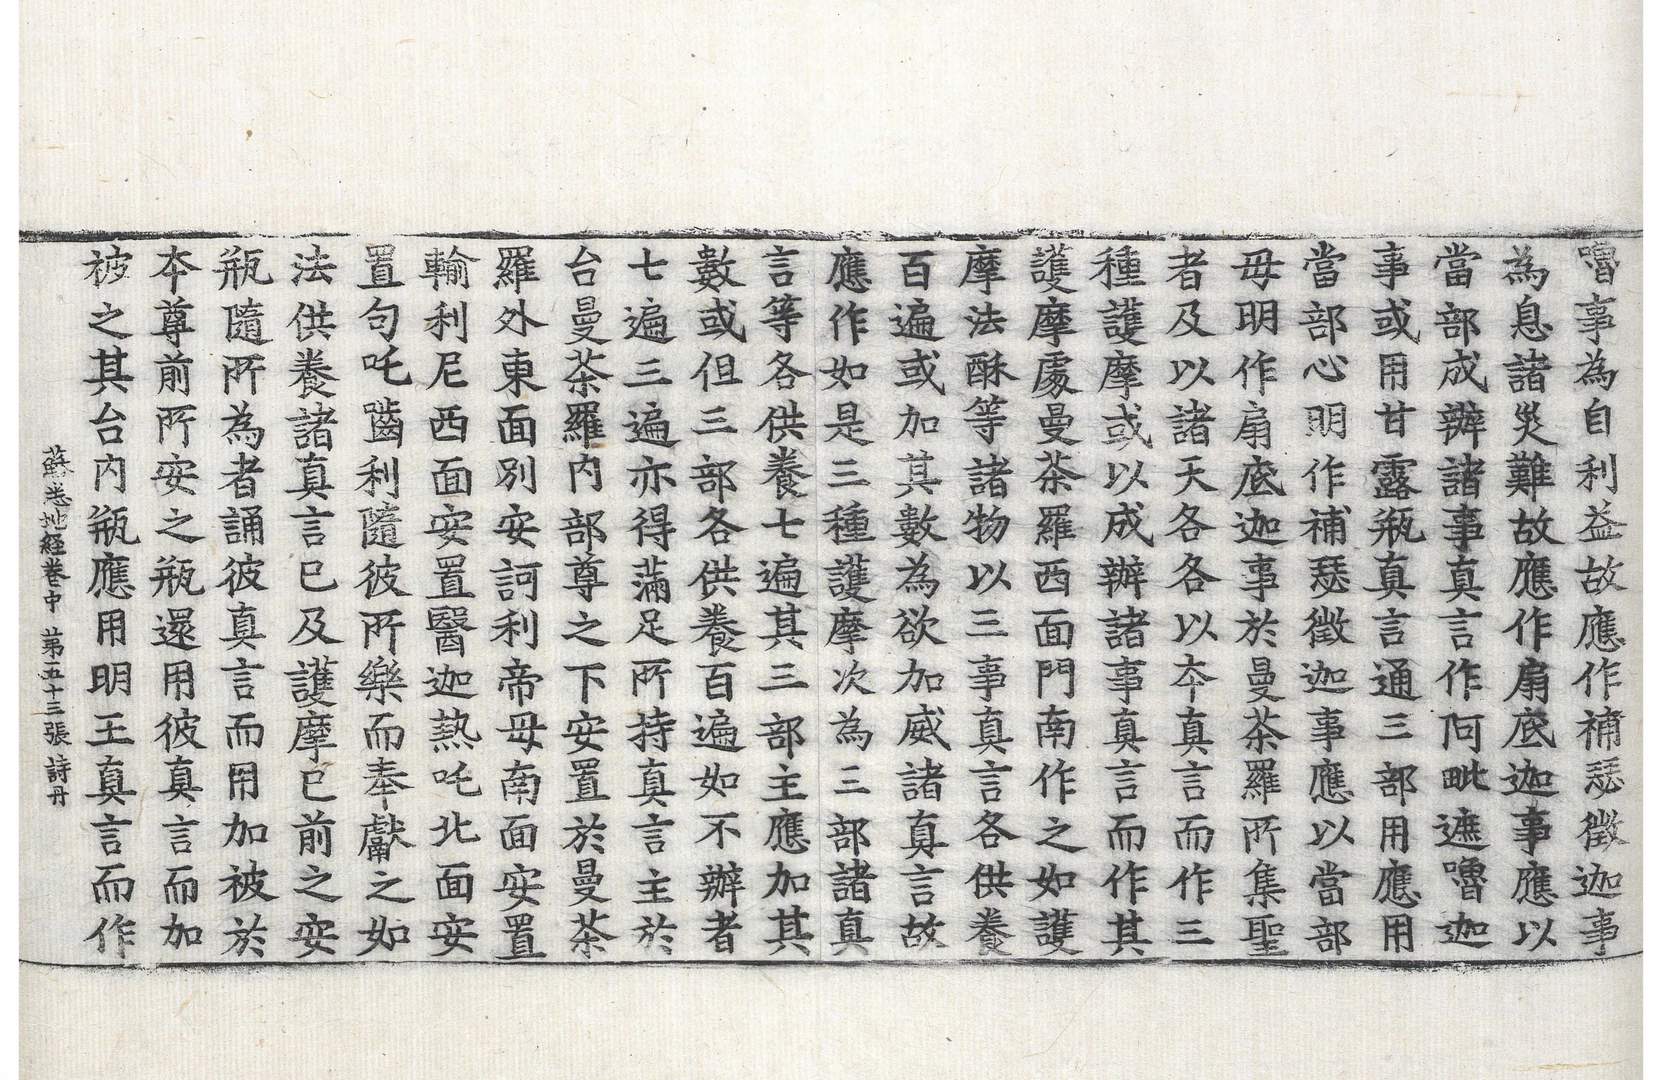 嚕事為自利益故應作補瑟徵迦事
為息諸災難故應作扇底迦事應以
當部成辦諸事真言作阿毗遮嚕迦
事或用甘露瓶真言通三部用應用
當部心明作補瑟徵迦事應以當部
母明作扇底迦事於曼茶羅所集聖
者及以諸天各各以夲真言而作三
種護摩或以成辦諸事真言而作其
護摩處曼茶羅西面門南作之如護
摩法酥等諸物以三事真言各供養
百遍或加其數為欲加威諸真言故
應作如是三種護摩次為三部諸真
言等各供養七遍其三部主應加其
數或但三部各供養百遍如不辦者
七遍三遍亦得滿足所持真言主於
台曼茶羅内部尊之下安置於曼茶
羅外東面別安訶利帝母南面安置
輸利尼西面安置醫迦熱吒北面安
置句吒齒利隨彼所樂而奉獻之如
法供養諸真言已及護摩已前之安
瓶隨所為者誦彼真言而用加被於
夲尊前所安之瓶還用彼真言而加
被之其台内瓶應用明王真言而作
蘇悉地經卷中 第五十三張 詩丹